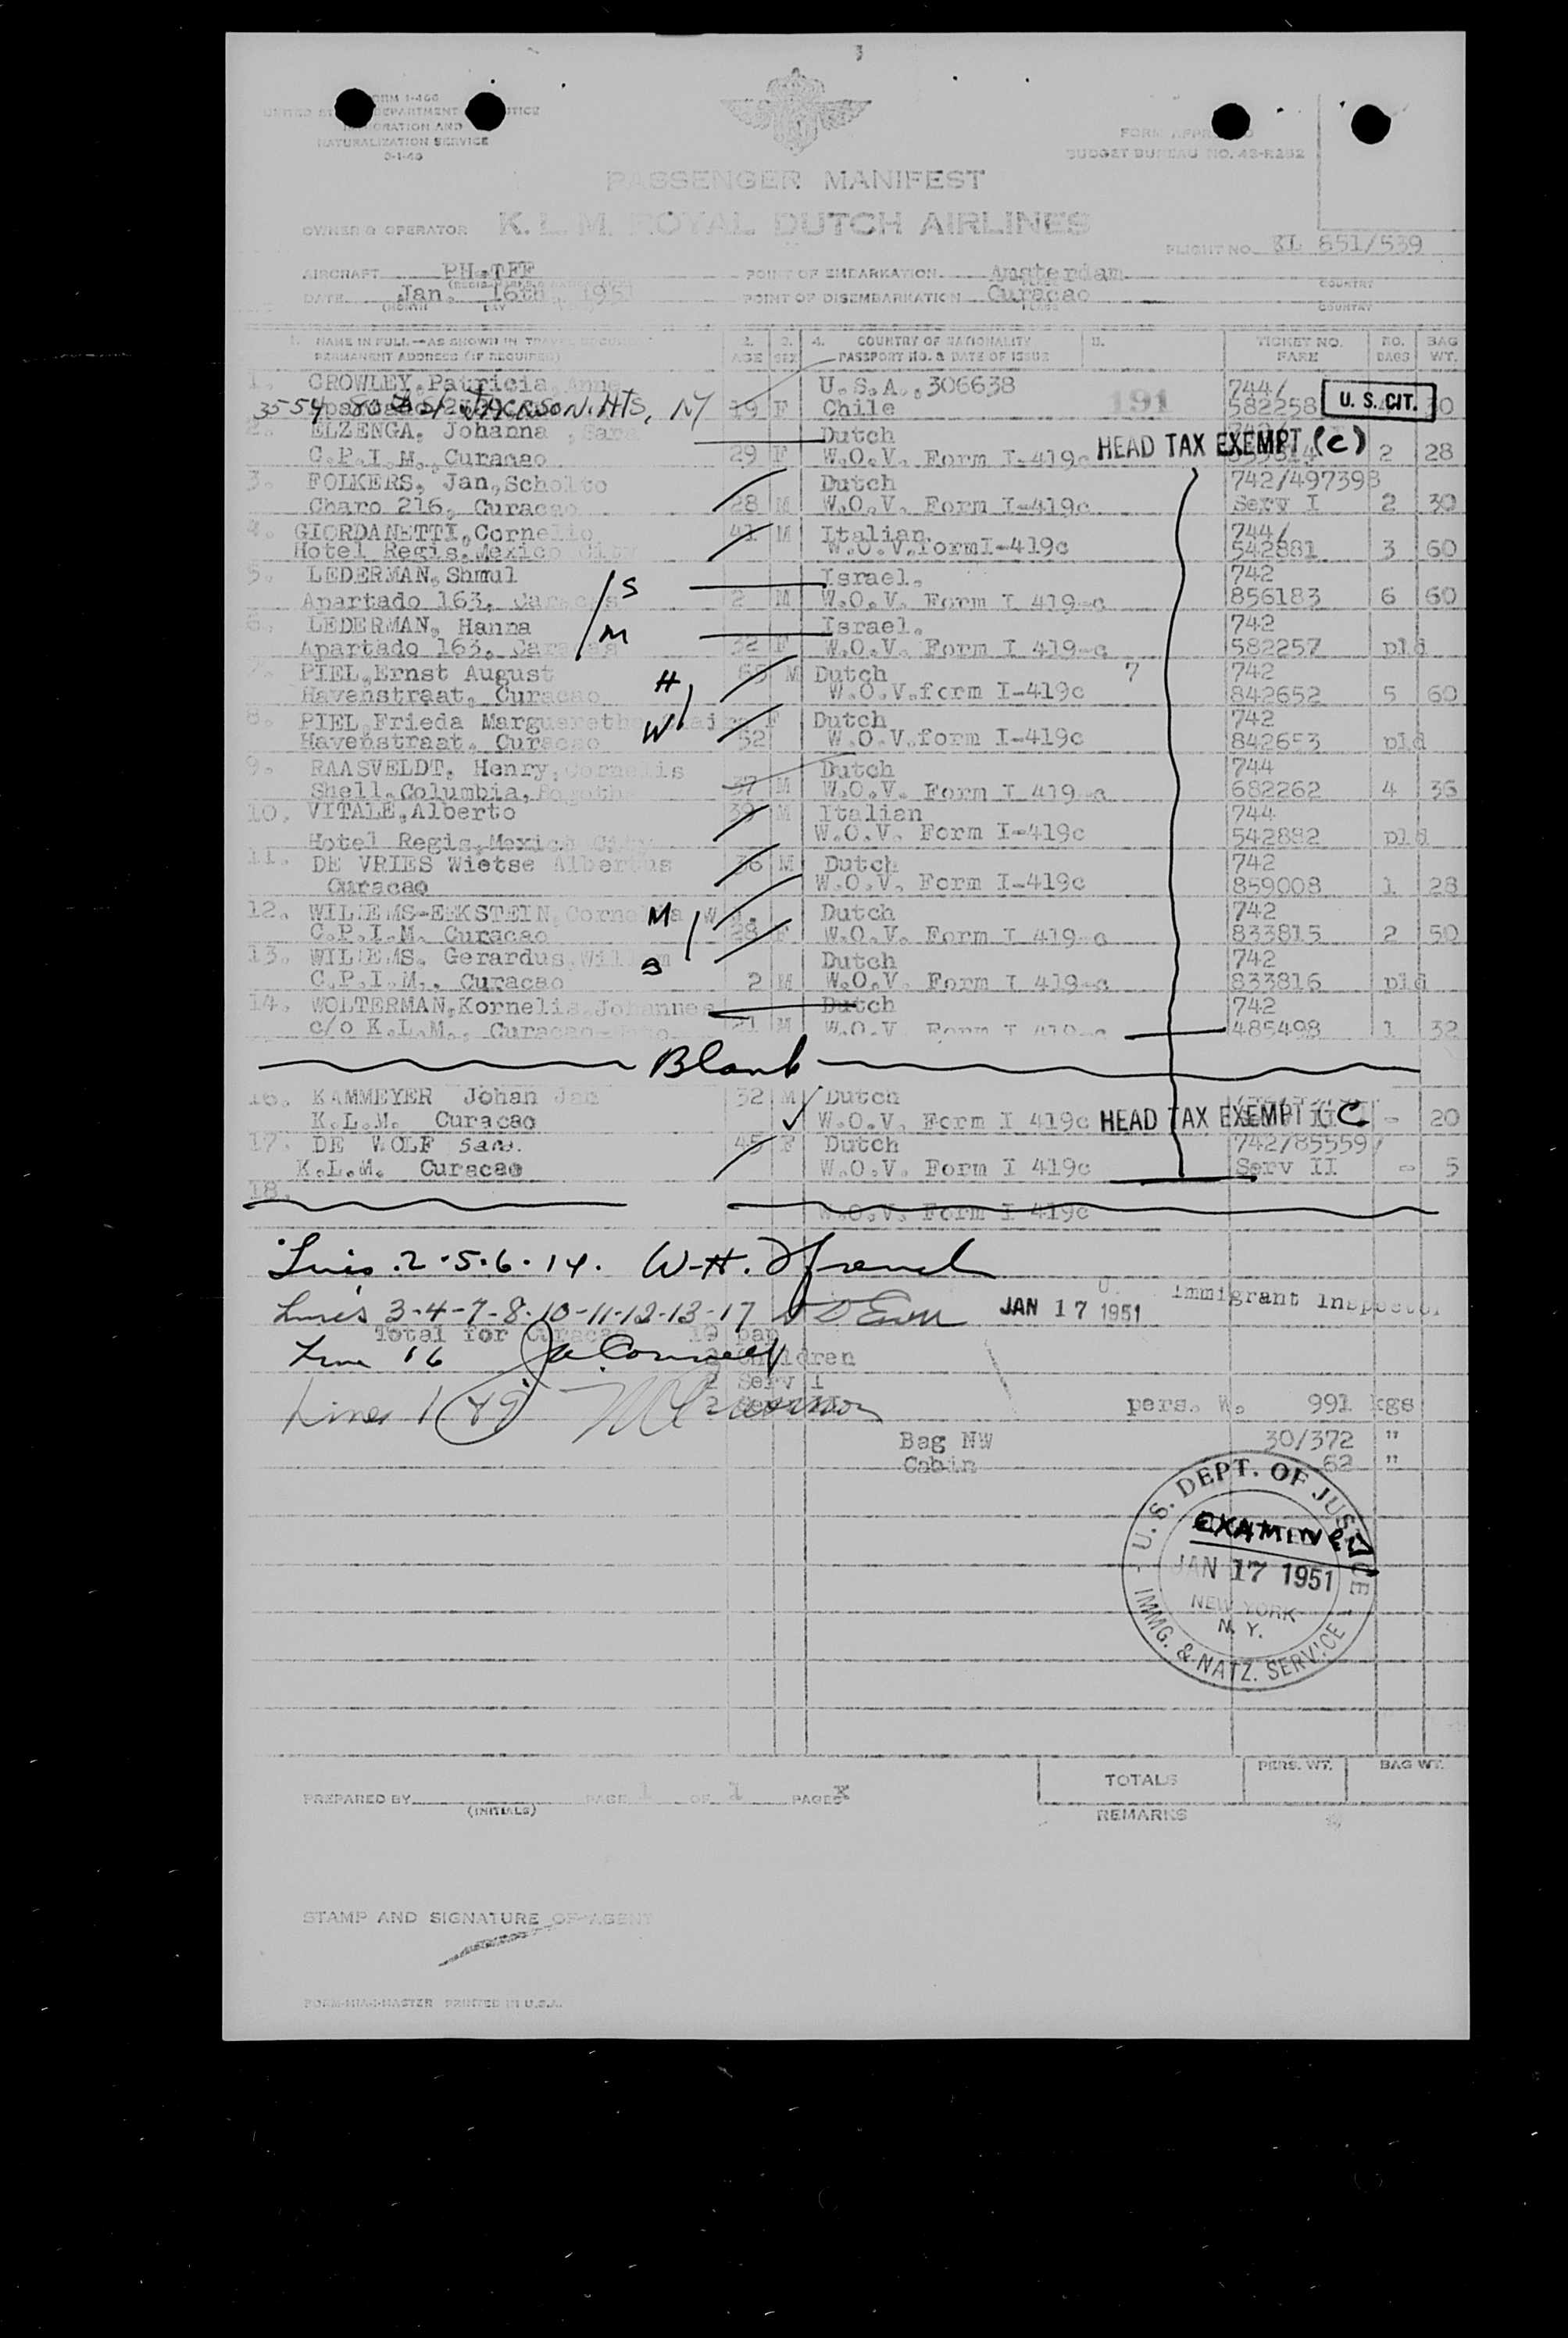 3
FORM I-466
UNITED ST DEPARTMENT STICE
IMMIGRATION AND
NATURALIZATION SERVICE
FORM APPR
BUDGET BUREAU NO. 43-R252
PASSENGER MANIFEST
OWNER & OPERATOR K. L. M. ROYAL DUTCH AIRLINES
FLIGHT NO. KL 651/539
AIRCRAFT PH-TFF POINT OF EMBARKATION Amsterdam COUNTRY
DATE Jan. 16th, 1951 POINT OF DISEMBARKATION Curacao COUNTRY
(MONTH DAY PLACE
1. NAME IN FULL—AS SHOWN IN TRAVEL DOCUMENT 2. 3. 4. COUNTRY OF NATIONALITY TICKET NO. NO. BAG
PERMANENT ADDRESS (IF REQUIRED) AGE SEX PASSPORT NO. & DATE OF ISSUE FARE BAGS WT.
1. CROWLEY, Patricia Anne U.S.A., 306638 744/
35-54 80 JACKSON HTS, NY 19 F Chile 191 582258 U. S. CIT.
2. ELZENGA, Johanna, Sara Dutch HEAD TAX EXEMPT (C)
C.P.I.M., Curacao 29 F W.O.V. Form I-419c 2 28
3. FOLKERS, Jan, Scholto Dutch 742/497398
Charo 216, Curacao 28 M W.O.V. Form I-419c Serv I 2 30
4. GIORDANETTI, Cornelio 41 M Italian 744/
Hotel Regis, Mexico City W.O.V. form I-419c 542881 3 60
5. LEDERMAN, Shmul S Israel. 742
Apartado 163, Caracas 2 M W.O.V. Form I 419-c 856183 6 60
6. LEDERMAN, Hanna M Israel. 742
Apartado 163, Caracas 32 F W.O.V. Form I 419-c 582257 pld
7. PIEL, Ernst August H 65 M Dutch 7 742
Havenstraat, Curacao W.O.V. form I-419c 842652 5 60
8. PIEL, Frieda Marguerethe F Dutch 742
Havenstraat. Curacao W 52 W.O.V. form I-419c 842653 pld
9. RAASVELDT, Henry, Cornelis Dutch 744
Shell, Columbia, Bogotha 37 M W.O.V. Form I 419-c 682262 4 36
10. VITALE, Alberto 39 M Italian 744
Hotel Regis, Mexico City W.O.V. Form I-419c 542882 pld
11. DE VRIES Wietse Albertus 36 M Dutch 742
Curacao W.O.V. Form I-419c 859008 1 28
12. WILLEMS-EKSTEIN, Cornelia W M Dutch 742
C.P.I.M. Curacao 28 F W.O.V. Form I 419-c 833815 2 50
13. WILLEMS, Gerardus, Willem S Dutch 742
C.P.I.M., Curacao 2 M W.O.V. Form I 419-c 833816 pld
14. WOLTERMAN, Kornelis Johannes Dutch 742
c/o K.L.M., Curacao 21 M W.O.V. Form I 419-c 485498 1 32
Blank
16. KAMMEYER Johan Jan 32 M Dutch
K.L.M. Curacao W.O.V. Form I 419c HEAD TAX EXEMPT (C - 20
17. DE WOLF Sam. 45 F Dutch 742/855597
K.L.M. Curacao W.O.V. Form I 419c Serv II - 5
18.
W.O.V. Form I 419c
Lines 2-5-6-14. W-H. French
Immigrant Inspector
Lines 3-4-7-8-10-11-12-13-17 JAN 17 1951
Total for Curacao 19 pap
Line 16 Children
2 Serv I
Lines 1 & 9 2 pers. W. 991 kgs
Bag NW 30/372 "
Cabin 62 "
U. S. DEPT. OF JUSTICE
EXAMINED
JAN 17 1951
NEW YORK
N. Y.
IMMG. & NATZ. SERVICE
PERS. WT. BAG WT.
TOTALS
PREPARED BY (INITIALS) PAGE 1 OF 1 PAGES
REMARKS
STAMP AND SIGNATURE OF AGENT
PRINTED IN U.S.A.